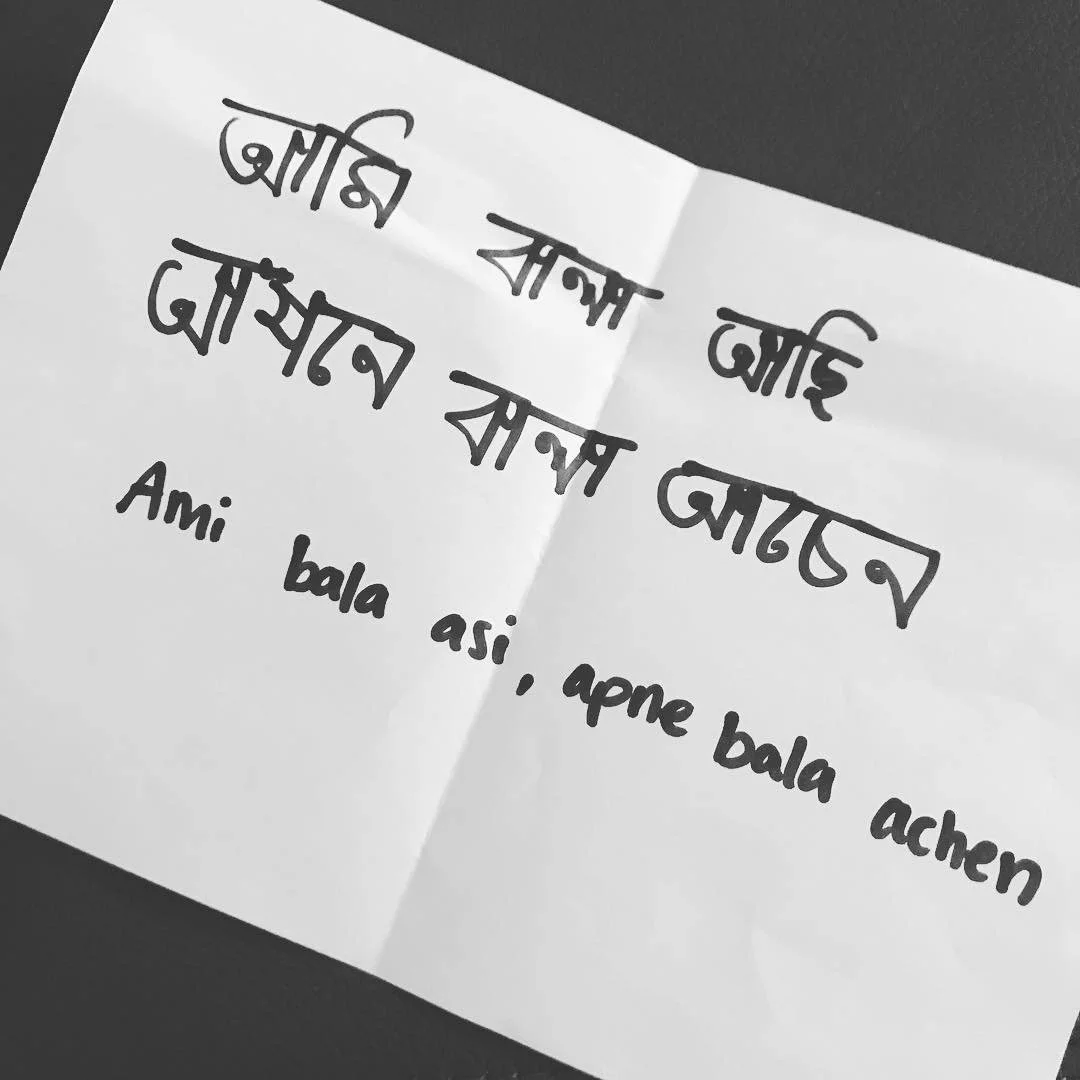 আমি বালা আছি
আপনে বালা আছেন
Ami bala asi, apne bala achen